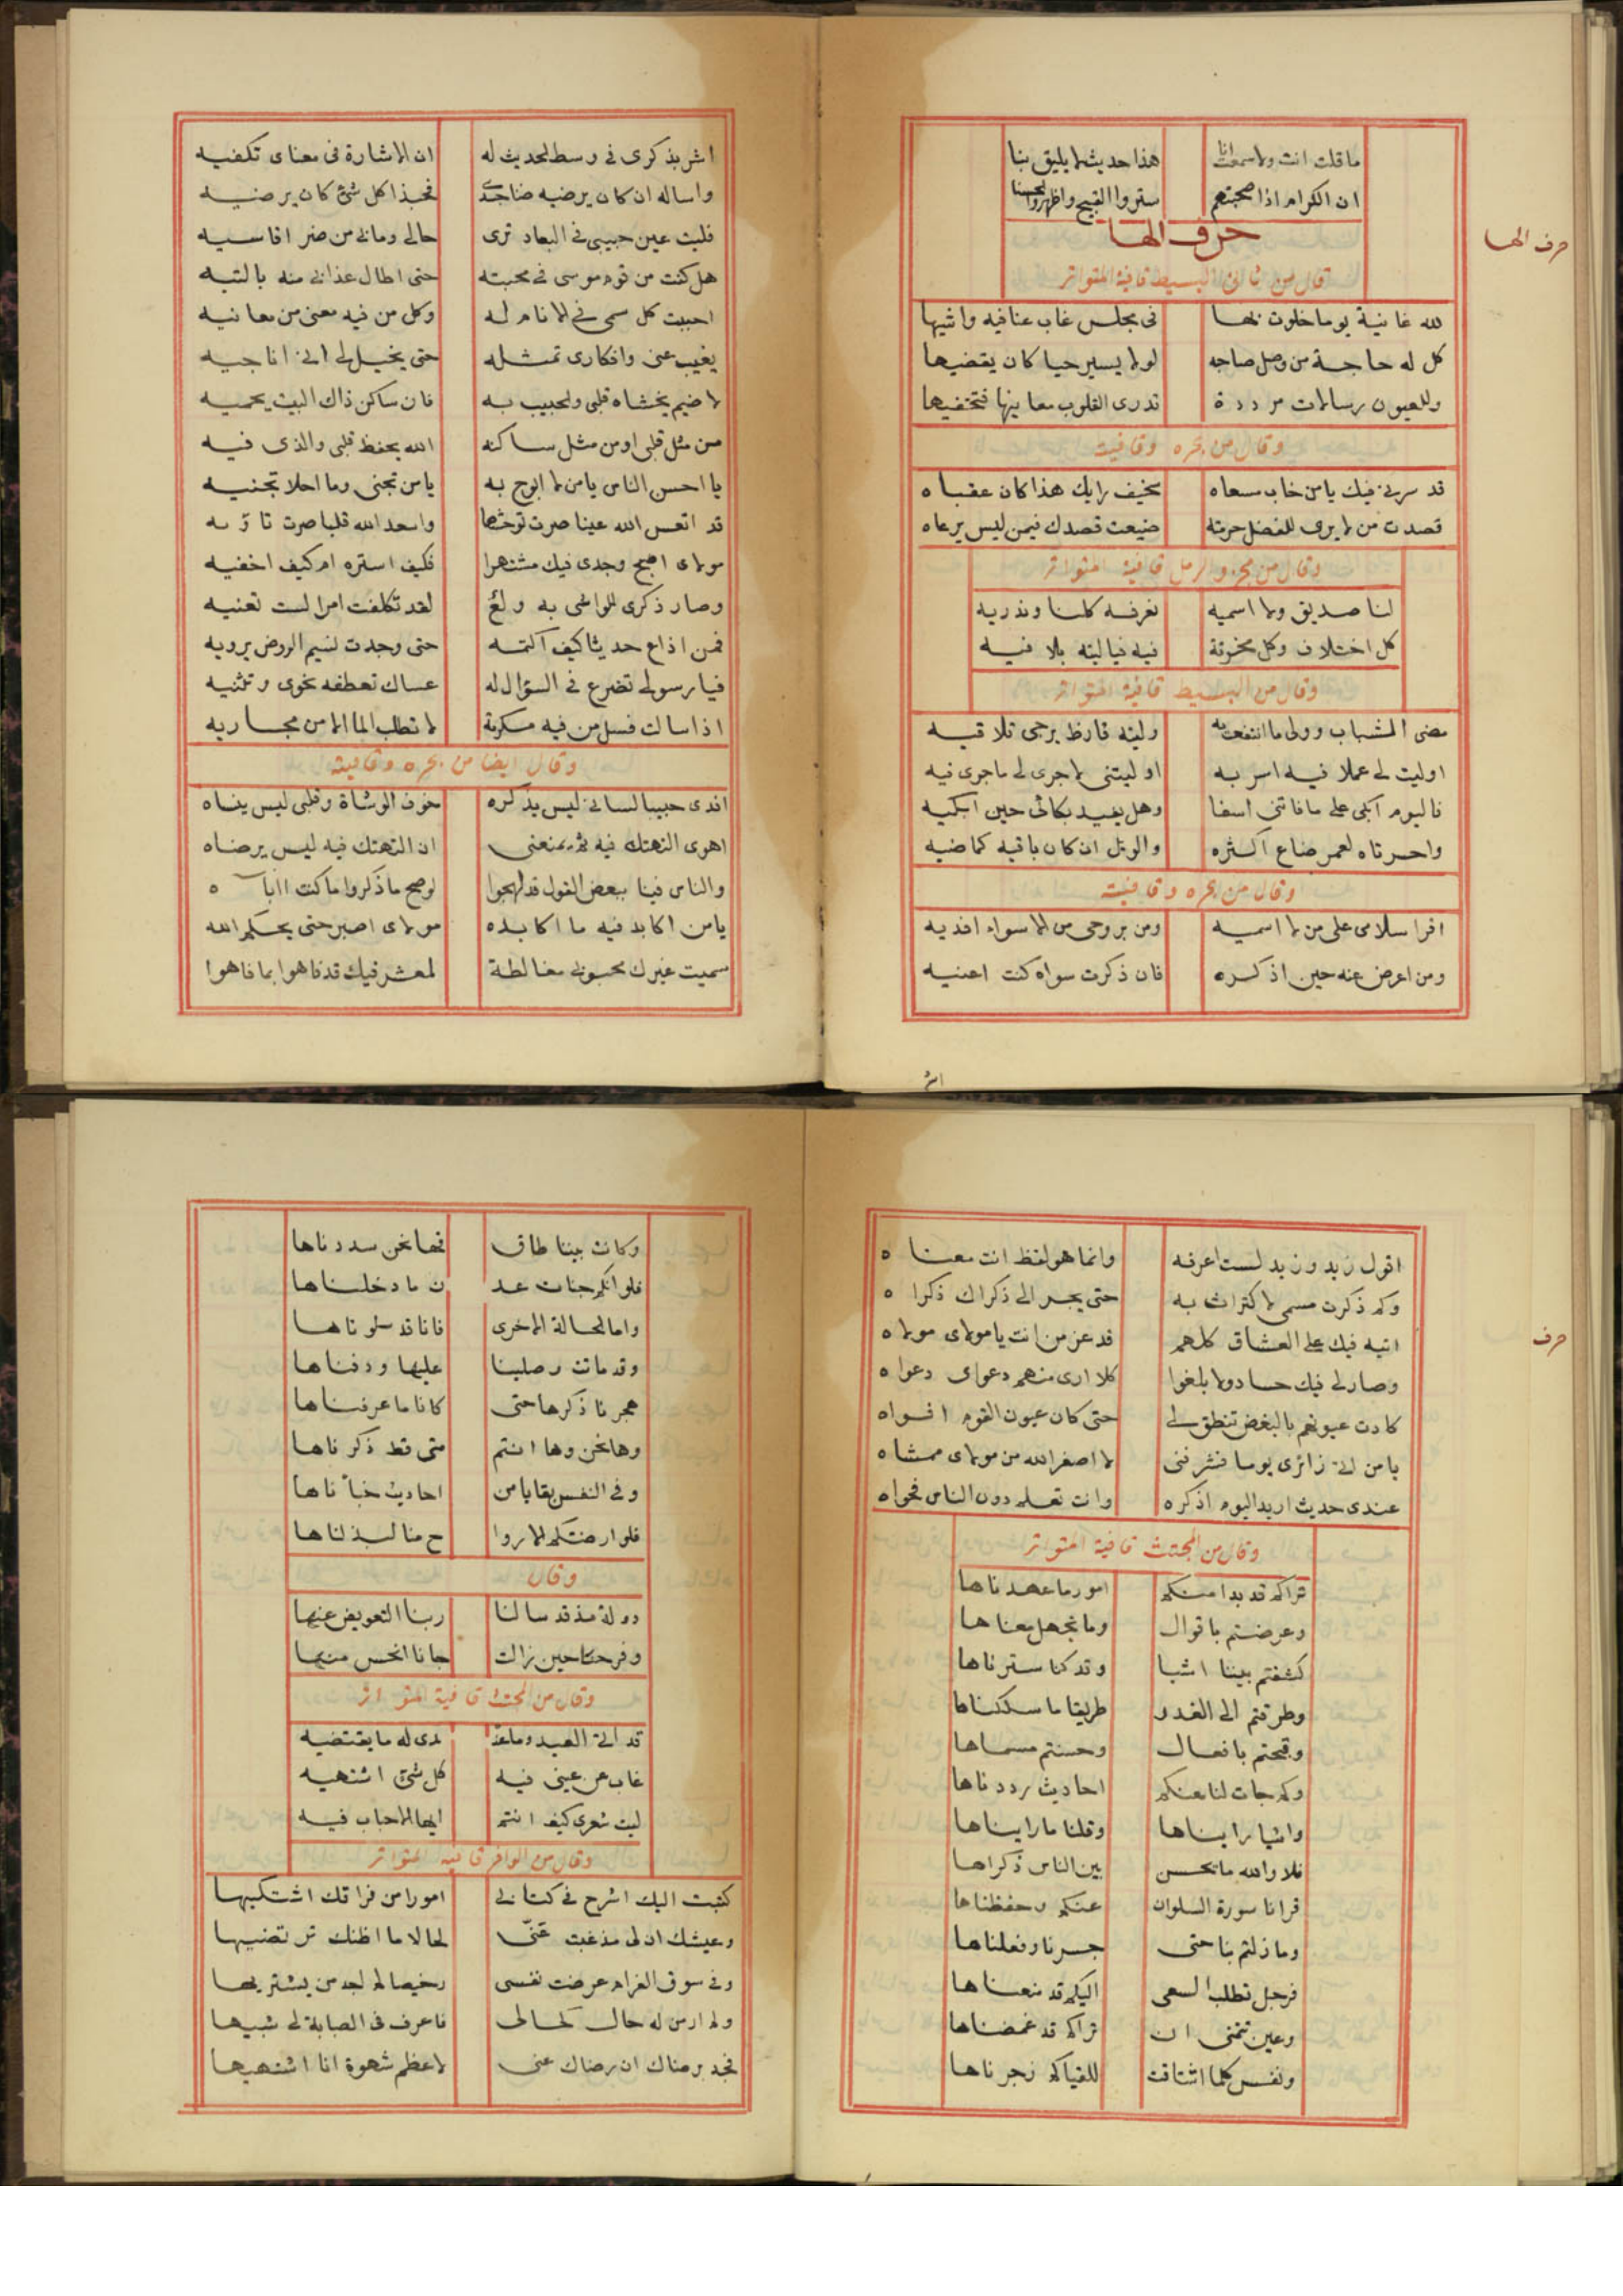 ما قلت انت ولا سمعت انا هذا حديث لا يليق بنا
ان الكرام اذا صحبتهم ستروا القبيح واظهروا الحسنا
حرف الها
حرف الها
قال من ثاني البسيط قافية المتواتر
لله غانية يوما خلوت بها فى مجلس غاب عنا فيه واشيها
كل له حاجة من وصل صاحبه لولا يسير حيا كان يقضيها
وللعيون رسالات مرددة تدرى القلوب معانيها فتخفيها
وقال من بحره وقافيته
قد سرنى فيك يا من خاب مسعاه سخيف رايك هذا كان عقباه
قصدت من لا يرى للفضل حرمته ضيعت قصدك فيمن ليس يرعاه
وقال من مجزو الرمل قافية المتواتر
لنا صديق ولا اسميه نعرفه كلنا وندريه
كل اختلاف وكل مخرقة فيه فيا ليته بلا فيه
وقال من البسيط قافية المتواتر
مضى الشباب وولى ما انتفعت به وليته فارط يرجى تلاقيه
اوليت لى عملا فيه اسر به او ليتنى لا جرى لى ما جرى فيه
فاليوم ابكى على ما فاتنى اسفا وهل يفيد بكائى حين ابكيه
واحسرتاه لعمر ضاع اكثره والويل ان كان باقيه كماضيه
وقال من بحره وقافيته
اقرا سلامى على من لا اسميه ومن بروحى من الاسواء افديه
ومن اعرض عنه حين اذكره فان ذكرت سواه كنت اعنيه
اشر
اشر بذكرى فى وسط الحديث له ان الاشارة فى معناى تكفيه
واساله ان كان يرضيه ضنا جسدى فحبذا كل شئ كان يرضيه
فليت عين حبيبى فى البعاد ترى حالى وما بى من ضر اقاسيه
هل كنت من قوم موسى فى محبته حتى اطال عذابى منه بالتيه
احببت كل سمى فى الانام له وكل من فيه معنى من معانيه
يغيب عنى وافكارى تمثله حتى يخيل لى انى اناجيه
لا ضيم يخشاه قلبى والحبيب به فان ساكن ذاك البيت يحميه
من مثل قلبى او من مثل ساكنه الله يحفظ قلبى والذى فيه
يا احسن الناس يا من لا ابوح به يا من تجنى وما احلا تجنيه
قد اتعس الله عينا صرت توحشها واسعد الله قلبا صرت تاويه
مولاى اصبح وجدى فيك مشتهرا فكيف استره ام كيف اخفيه
وصار ذكرى للواشى به ولع لقد تكلفت امرا لست تعنيه
فمن اذاع حديثا كيف اكتمه حتى وجدت نسيم الروض يرويه
فيا رسولى تضرع فى السؤال له عساك تعطفه نحوى وتثنيه
اذا سالت فسل من فيه مكرمة لا تطلب الما الا من مجاريه
وقال ايضا من بحره وقافيته
افدى حبيبا لسانى ليس يذكره خوف الوشاة وقلبى ليس ينساه
اهوى التهتك فيه ثم يمنعنى ان التهتك فيه ليس يرضاه
والناس فينا ببعض القول قد لهجوا لو صح ما ذكروا ما كنت اباه
يا من اكابد فيه ما اكابده مولاى اصبر حتى يحكم الله
سميت غيرك محبوبى مغالطة لمعشر فيك قد فاهوا بما فاهوا
اقول زيد وزيد لست اعرفه وانما هو لفظ انت معناه
وكم ذكرت مسمى لا اكتراث به حتى يجر الى ذكراك ذكراه
اتيه فيك على العشاق كلهم قد عز من انت يا مولاى مولاه
وصار لى فيك حساد ولا بلغوا كلا ارى منهم دعواى دعواه
كادت عيونهم بالبغض تنطق لى حتى كان عيون القوم افواه
يا من اتى زائرى يوما فشرفنى لا اصغر الله من مولاى ممشاه
عندى حديث اريد اليوم اذكره وانت تعلم دون الناس فحواه
حرف
وقال من المجتث قافية المتواتر
تراكم قد بدا منكم امور ما عهدناها
وعرضتم باقوال وما نجهل معناها
كشفتم بيننا اشيا وقد كنا سترناها
وطرقتم الى الغدر طريقا ما سلكناها
وقبحتم بافعال وحسنتم مسماها
وكم جات لنا عنكم احاديث رددناها
واشيا رايناها وقلنا ما رايناها
فلا والله ما يحسن بين الناس ذكراها
قرانا سورة السلوان عنكم وحفظناها
وما زلتم بنا حتى جسرنا وفعلناها
فرجل تطلب السعى اليكم قد منعناها
وعين تتمنى ان تراكم قد غمضناها
ونفس كلما اشتاقت للقياكم زجرناها
وكانت بيننا طاق فها نحن سددناها
فلو انكم جنات عد ن ما دخلناها
واما الحالة الاخرى فانا قد سلوناها
وقد ماتت وصلينا عليها ودفناها
هجرنا ذكرها حتى كانا ما عرفناها
وها نحن وها انتم متى قط ذكرناها
وفى النفس بقايا من احاديث خبأناها
فلو ارضتكم الاروا ح منا لبذلناها
وقال
دولة مذ قد سالنا ربنا التعويض عنها
وفرحنا حين زالت جانا انحس منها
وقال من المجتث قافية المتواتر
قد اتى العيد وما عنـ ـدى له ما يقتضيه
غاب عن عينى فيه كل شئ اشتهيه
ليت شعرى كيف انتم ايها الاحباب فيه
وقال من الوافر قافية المتواتر
كتبت اليك اشرح فى كتابى امورا من فراقك اشتكيها
وعيشك ان لى مذ غبت عنى لحالا ما اظنك ترتضيها
وفى سوق الغرام عرضت نفسى رخيصا لم اجد من يشتريها
ولم ار من له حال كحالى فاعرف فى الصبابة لى شبيها
فجد برضاك ان رضاك عنى لاعظم شهوة انا اشتهيها